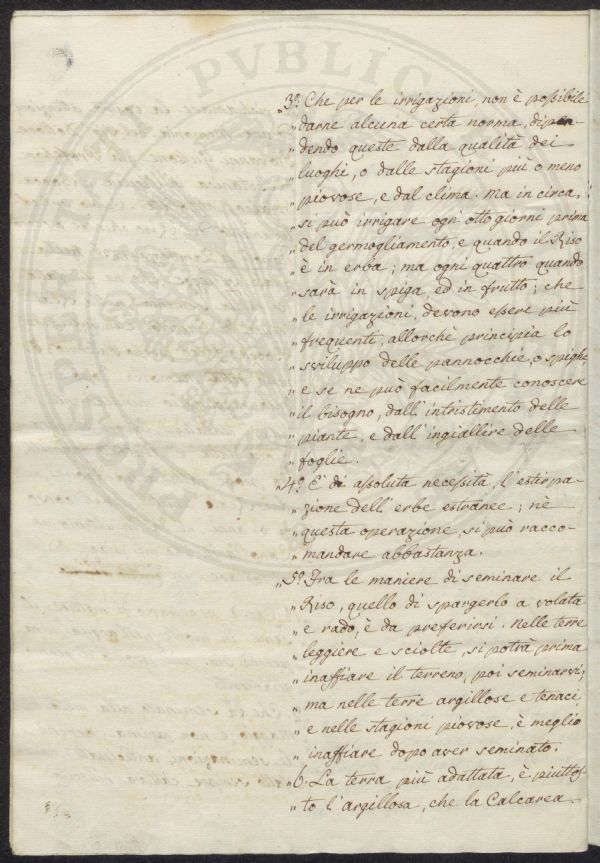 PVBLIC
„ 3.° Che per le irrigazioni, non è possibile
„ darne alcuna certa norma, dipen-
„ dendo queste dalla qualità dei
„ luoghi, o dalle stagioni più o meno
„ piovose, e dal clima. Ma in circa,
„ si può irrigare ogni otto giorni prima
„ del germogliamento, e quando il Riso
„ è in erba; ma ogni quattro quando
„ sarà in spiga, ed in frutto; che
„ le irrigazioni, devono essere più
„ frequenti, allorchè principia lo
„ sviluppo delle pannocchie, o spighe,
„ e se ne può facilmente conoscere
„ il bisogno, dall' intristimento delle
„ piante, e dall' ingiallire delle
„ foglie.
„ 4.° E' di assoluta necessità, l' estirpa-
„ zione dell' erbe estranee; nè
„ questa operazione, si può racco-
„ mandare abbastanza.
„ 5.° Fra le maniere di seminare il
„ Riso, quello di spargerlo a volata
„ e rado, è da preferirsi. Nelle terre
„ leggiere e sciolte, si potrà prima
„ inaffiare il terreno, poi seminarvi;
„ ma nelle terre argillose e tenaci,
„ e nelle stagioni piovose, è meglio
„ inaffiare dopo aver seminato.
„ 6. La terra più adattata, è piuttos-
„ to l' argillosa, che la Calcarea.